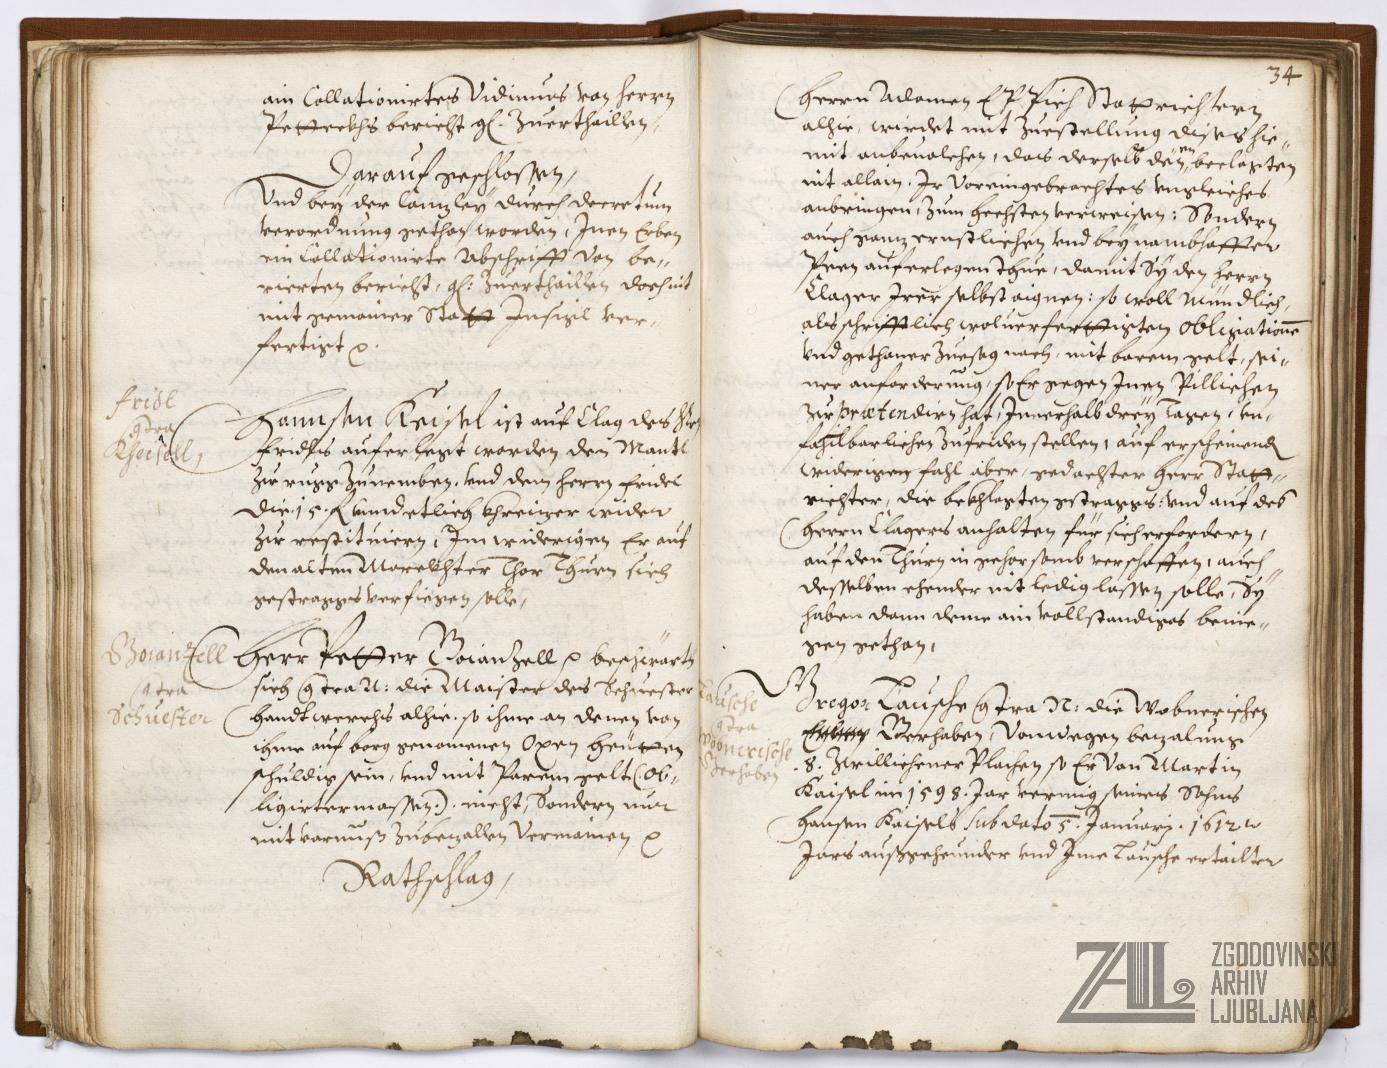 ain Collationirtes Vidimus von herrn
Petteekhs bericht gl. Zuerthaillen,
Darauf geschlossen,
Vnd bey der Canzley durch decretum
verordnung gethan worden, Inen Erben
ein Collationirte Abschrifft von be-
rierten bericht, gl: Zuerthaillen doch mit
mit gemainer Statt Insigl ver-
fertigt
fridl
contra
Kheisell,
Hannsen Keisel ist auf Clag des
fridls auferlegt worden den Mantl
Zu rugg Zunemben, vnd dem herrn fridl
die 15 vnd etlich khreuzer wider
Zu restituiern, Im widerigen Er auf
den alten Thor Thurn sich
gestraggs verfiegen solle,
Boianzell
contra
Schuester
Herr Petter Boianzell beschwärt
sich contra N: die Maister des Schuester
handtwerchs alhie, so ihme an denen von
ihme auf borg genomenen Oxen heüten
schuldig sein, vnd mit Parem gelt (Ob-
ligirtermassen) nicht, Sondern nur
mit Zubezallen Vermainen
Rathschlag,
34
Herrn Adamen Stattrichtern
alhie, wirdet mit Zuestellung dises hie-
mit anbeuolchen, das derselb denen beclagten
nit allain, Ir Voreingebrachtes vngleiches
anbringen, Zum hechsten verweisen: Sondern
auch ganz ernstlichen vnd bey nambhaffter
Peen auferlegen thue, damit Sy den herrn
Clager Irer selbst aignen: so woll Mündlich,
als schrifftlich woluerfertigten Obligationen
vnd gethaner Zuesag nach, mit barem gelt, sei-
ner anforderung, so Er gegen Inen Pillichen
Zu praetendirn hat, Innerhalb drey tagen, vn-
fahlbarlichen Zufriden stellen, auf erscheinend
widerigen fahl aber, gedachter herr Statt-
richter, die bekhlagten gstraggs: vnd auf des
herrn Clagers anhalten für sich erfordern,
auf den Thurn in gehorsamb verschaffen, auch
desselben ehender nit ledig lassen solle, Sy
haben dann deme ain vollstandiges benie-
gen gethan,
Tausche
contra
Wobnerische
Gerhaben
Gregor Tausche contra N: die Wobnerischen
Gerhaben, Von wegen bezalung
.8. Zwillichener Plachen so Er von Martin
Kaisel im 1598. Jar vermüg seines Sohns
hansen Kaisels sub dato 5. Januarj. 1612
Jars außgehennder vnd Ime Tausche ertailter
ZGODOVINSKI
ARHIV
LJUBLJANA